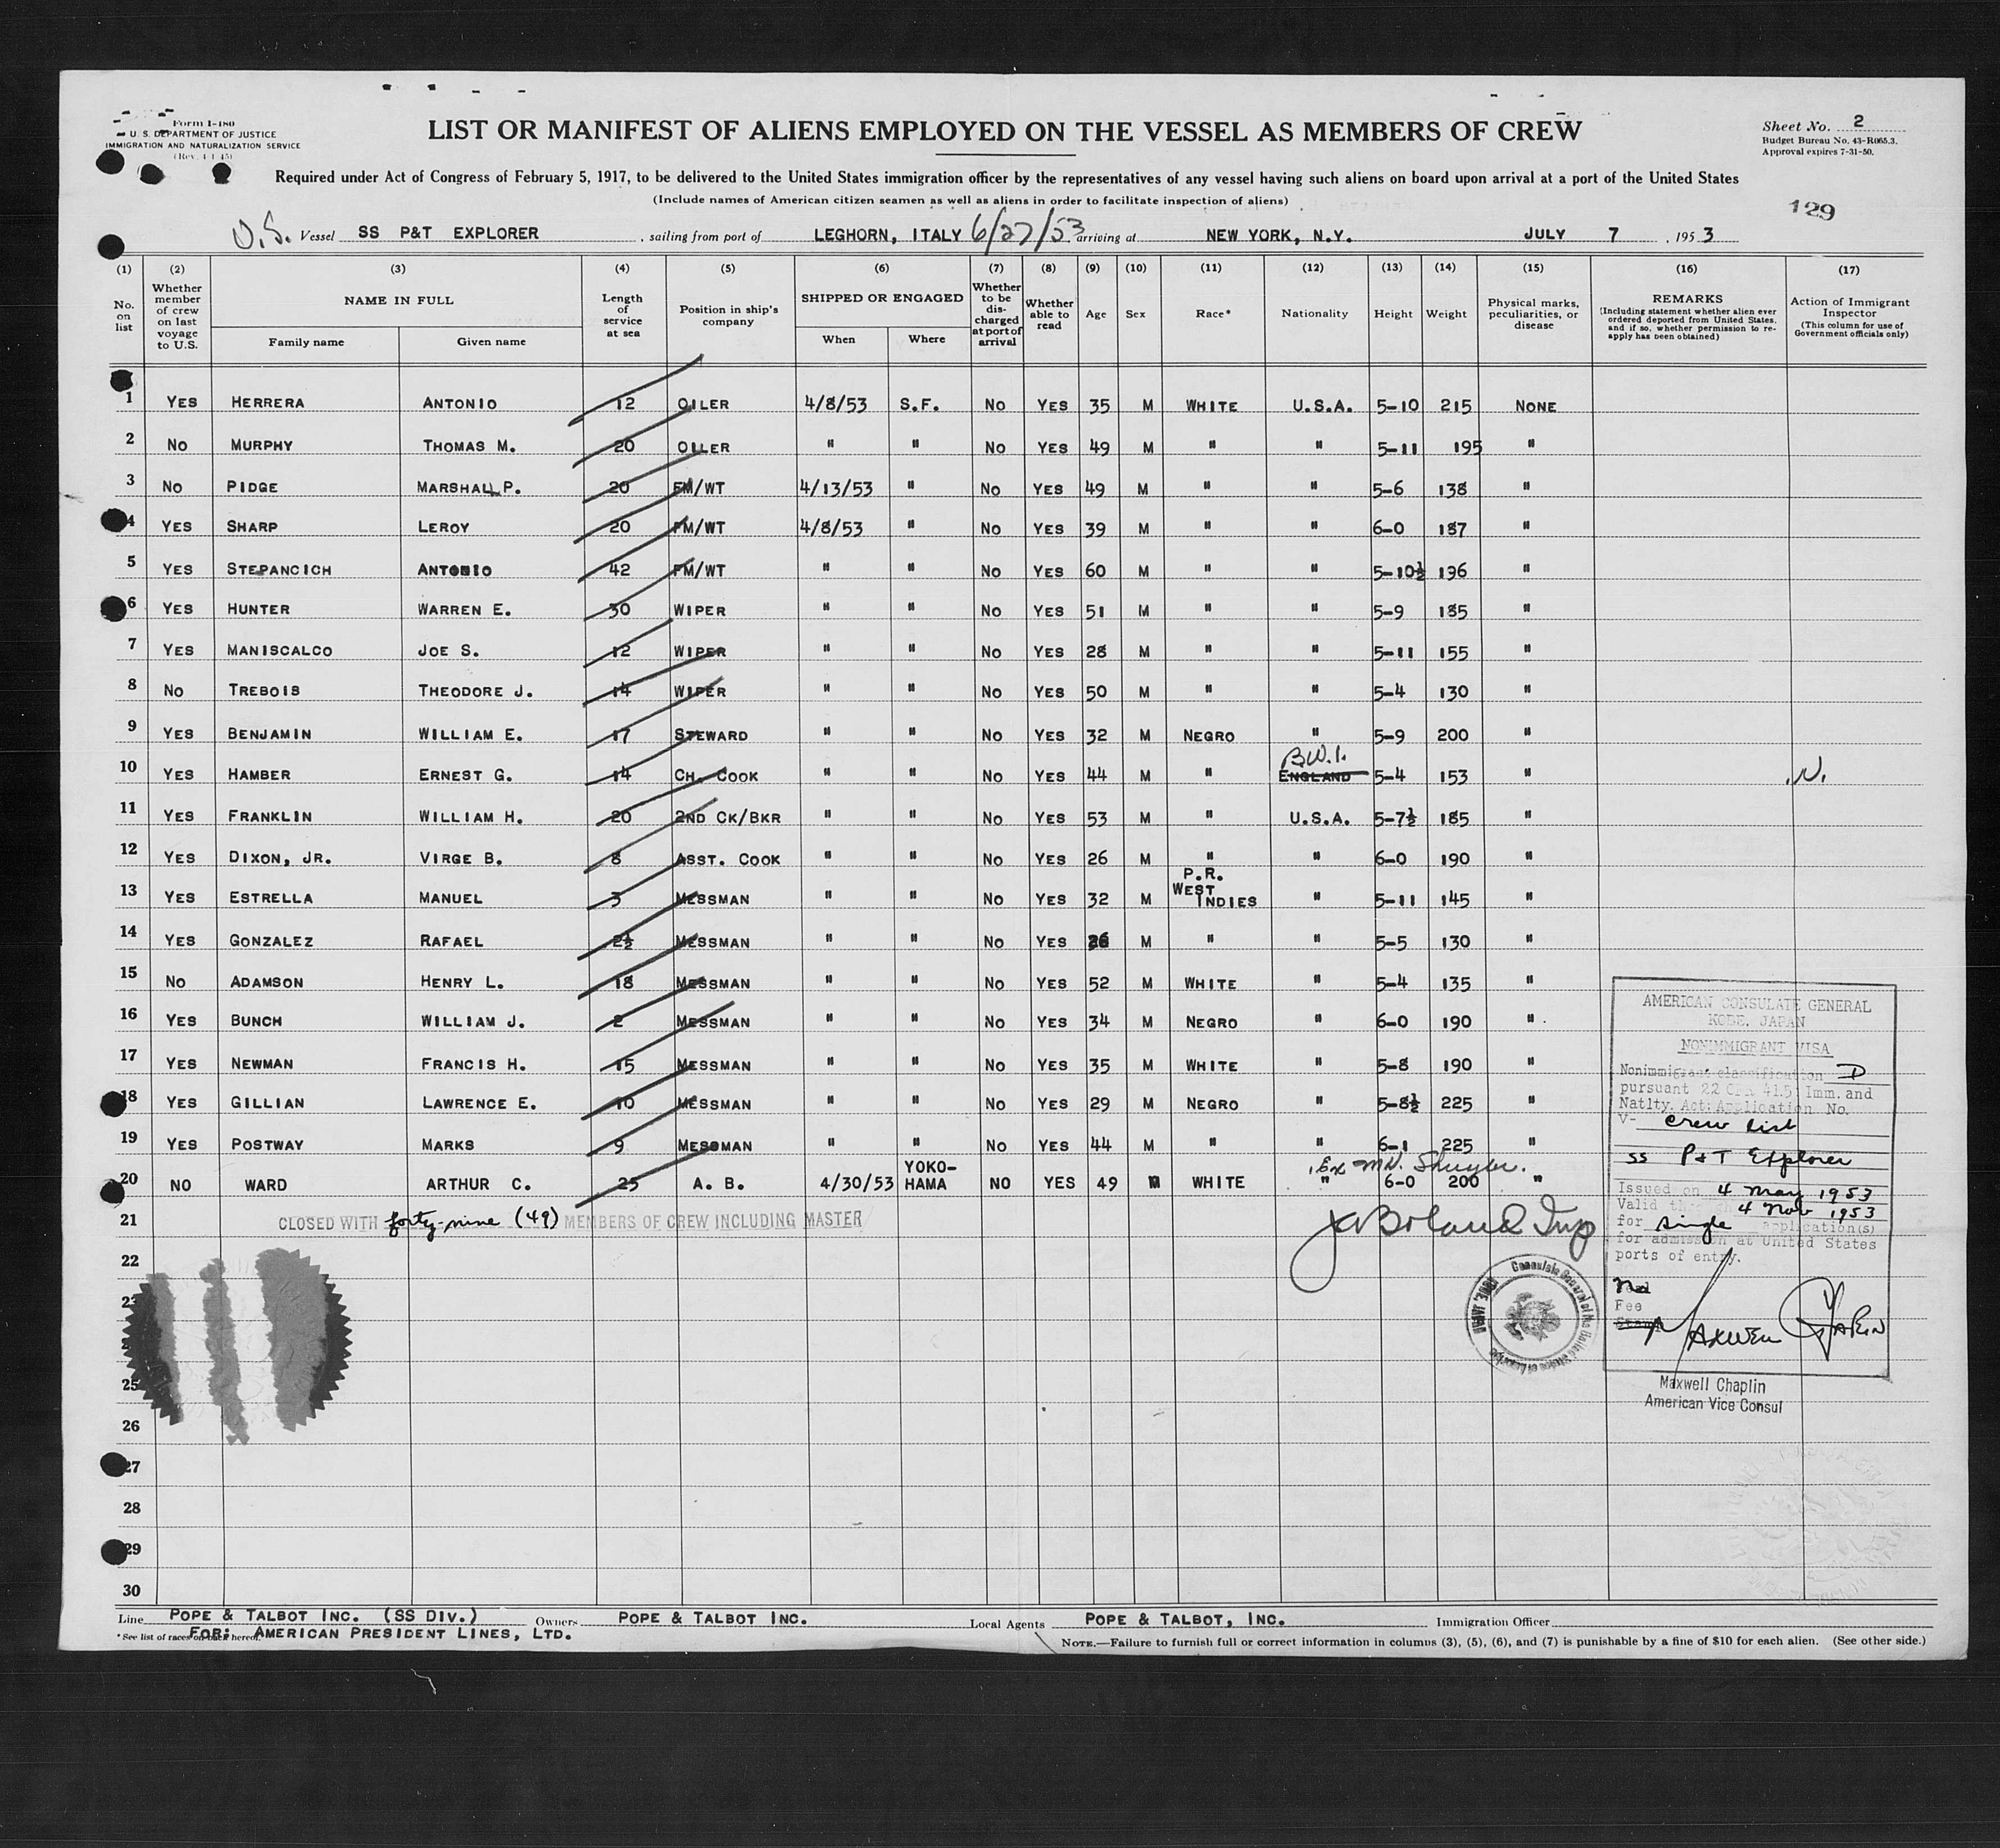 Form I-480
U. S. DEPARTMENT OF JUSTICE
IMMIGRATION AND NATURALIZATION SERVICE
(Rev. 4-1-45)
LIST OR MANIFEST OF ALIENS EMPLOYED ON THE VESSEL AS MEMBERS OF CREW
Sheet No. 2
Budget Bureau No. 43-R065.3.
Approval expires 7-31-50.
Required under Act of Congress of February 5, 1917, to be delivered to the United States immigration officer by the representatives of any vessel having such aliens on board upon arrival at a port of the United States
(Include names of American citizen seamen as well as aliens in order to facilitate inspection of aliens)
129
U.S. Vessel SS P&T EXPLORER, sailing from port of LEGHORN, ITALY 6/27/53 arriving at NEW YORK, N.Y. JULY 7, 1953
(1) (2) (3) (4) (5) (6) (7) (8) (9) (10) (11) (12) (13) (14) (15) (16) (17)
No. on list
Whether member of crew on last voyage to U.S.
NAME IN FULL
Family name
Given name
Length of service at sea
Position in ship's company
SHIPPED OR ENGAGED
When
Where
Whether to be discharged at port of arrival
Whether able to read
Age
Sex
Race*
Nationality
Height
Weight
Physical marks, peculiarities, or disease
REMARKS
(Including statement whether alien ever ordered deported from United States, and if so, whether permission to reapply has been obtained)
Action of Immigrant Inspector
(This column for use of Government officials only)
1 YES HERRERA ANTONIO 12 OILER 4/8/53 S.F. NO YES 35 M WHITE U.S.A. 5-10 215 NONE
2 NO MURPHY THOMAS M. 20 OILER " " NO YES 49 M " " 5-11 195 "
3 NO PIDGE MARSHALL P. 20 FM/WT 4/13/53 " NO YES 49 M " " 5-6 138 "
4 YES SHARP LEROY 20 FM/WT 4/8/53 " NO YES 39 M " " 6-0 187 "
5 YES STEPANCICH ANTONIO 42 FM/WT " " NO YES 60 M " " 5-10½ 196 "
6 YES HUNTER WARREN E. 30 WIPER " " NO YES 51 M " " 5-9 185 "
7 YES MANISCALCO JOE S. 12 WIPER " " NO YES 28 M " " 5-11 155 "
8 NO TREBOIS THEODORE J. 14 WIPER " " NO YES 50 M " " 5-4 130 "
9 YES BENJAMIN WILLIAM E. 17 STEWARD " " NO YES 32 M NEGRO " 5-9 200 "
B.W.I.
10 YES HAMBER ERNEST G. 14 CH. COOK " " NO YES 44 M " ENGLAND 5-4 153 " N.
11 YES FRANKLIN WILLIAM H. 20 2ND CK/BKR " " NO YES 53 M " U.S.A. 5-7½ 185 "
12 YES DIXON, JR. VIRGE B. 8 ASST. COOK " " NO YES 26 M " " 6-0 190 "
13 YES ESTRELLA MANUEL 3 MESSMAN " " NO YES 32 M P.R. WEST INDIES " 5-11 145 "
14 YES GONZALEZ RAFAEL 2½ MESSMAN " " NO YES 26 M " " 5-5 130 "
15 NO ADAMSON HENRY L. 18 MESSMAN " " NO YES 52 M WHITE " 5-4 135 "
16 YES BUNCH WILLIAM J. 2 MESSMAN " " NO YES 34 M NEGRO " 6-0 190 "
17 YES NEWMAN FRANCIS H. 15 MESSMAN " " NO YES 35 M WHITE " 5-8 190 "
18 YES GILLIAN LAWRENCE E. 10 MESSMAN " " NO YES 29 M NEGRO " 5-8½ 225 "
19 YES POSTWAY MARKS 9 MESSMAN " " NO YES 44 M " " 6-1 225 "
20 NO WARD ARTHUR C. 25 A. B. 4/30/53 YOKOHAMA NO YES 49 M WHITE " 6-0 200 "
21 CLOSED WITH forty-nine (49) MEMBERS OF CREW INCLUDING MASTER
22
23
25
26
27
28
29
30
AMERICAN CONSULATE GENERAL
KOBE, JAPAN
NONIMMIGRANT VISA
Nonimmigrant classification D
pursuant 22 CFR 41.5 Imm. and
Natlty. Act: Application No.
V- crew list
SS P&T Explorer
Issued on 4 May 1953
Valid through 4 Nov 1953
for single application(s)
for admission at United States
ports of entry.
No
Fee
Stamp
Maxwell Chaplin
Maxwell Chaplin
American Vice Consul
Line POPE & TALBOT INC. (SS DIV.) Owners POPE & TALBOT INC. Local Agents POPE & TALBOT, INC. Immigration Officer
FOR: AMERICAN PRESIDENT LINES, LTD.
* See list of races on back hereof.
NOTE.—Failure to furnish full or correct information in columns (3), (5), (6), and (7) is punishable by a fine of $10 for each alien. (See other side.)